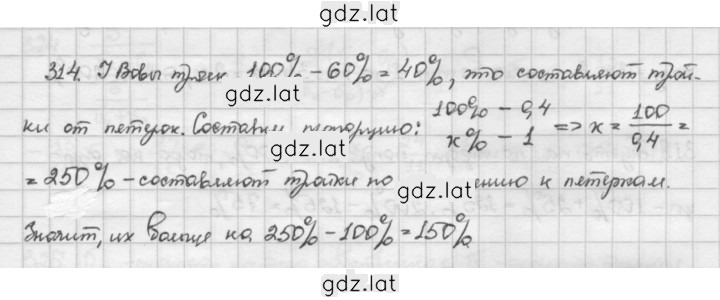 gdz.lat
314. У Вовы троек 100% - 60% = 40%, это составляют трой-
gdz.lat
ки от пятерок. Составим пропорцию: 100% - 0,4 x% - 1 => x = 100/0,4 =
gdz.lat
= 250% - составляют тройки по gdz.lat ению к пятеркам.
Значит, их больше на 250% - 100% = 150%
gdz.lat